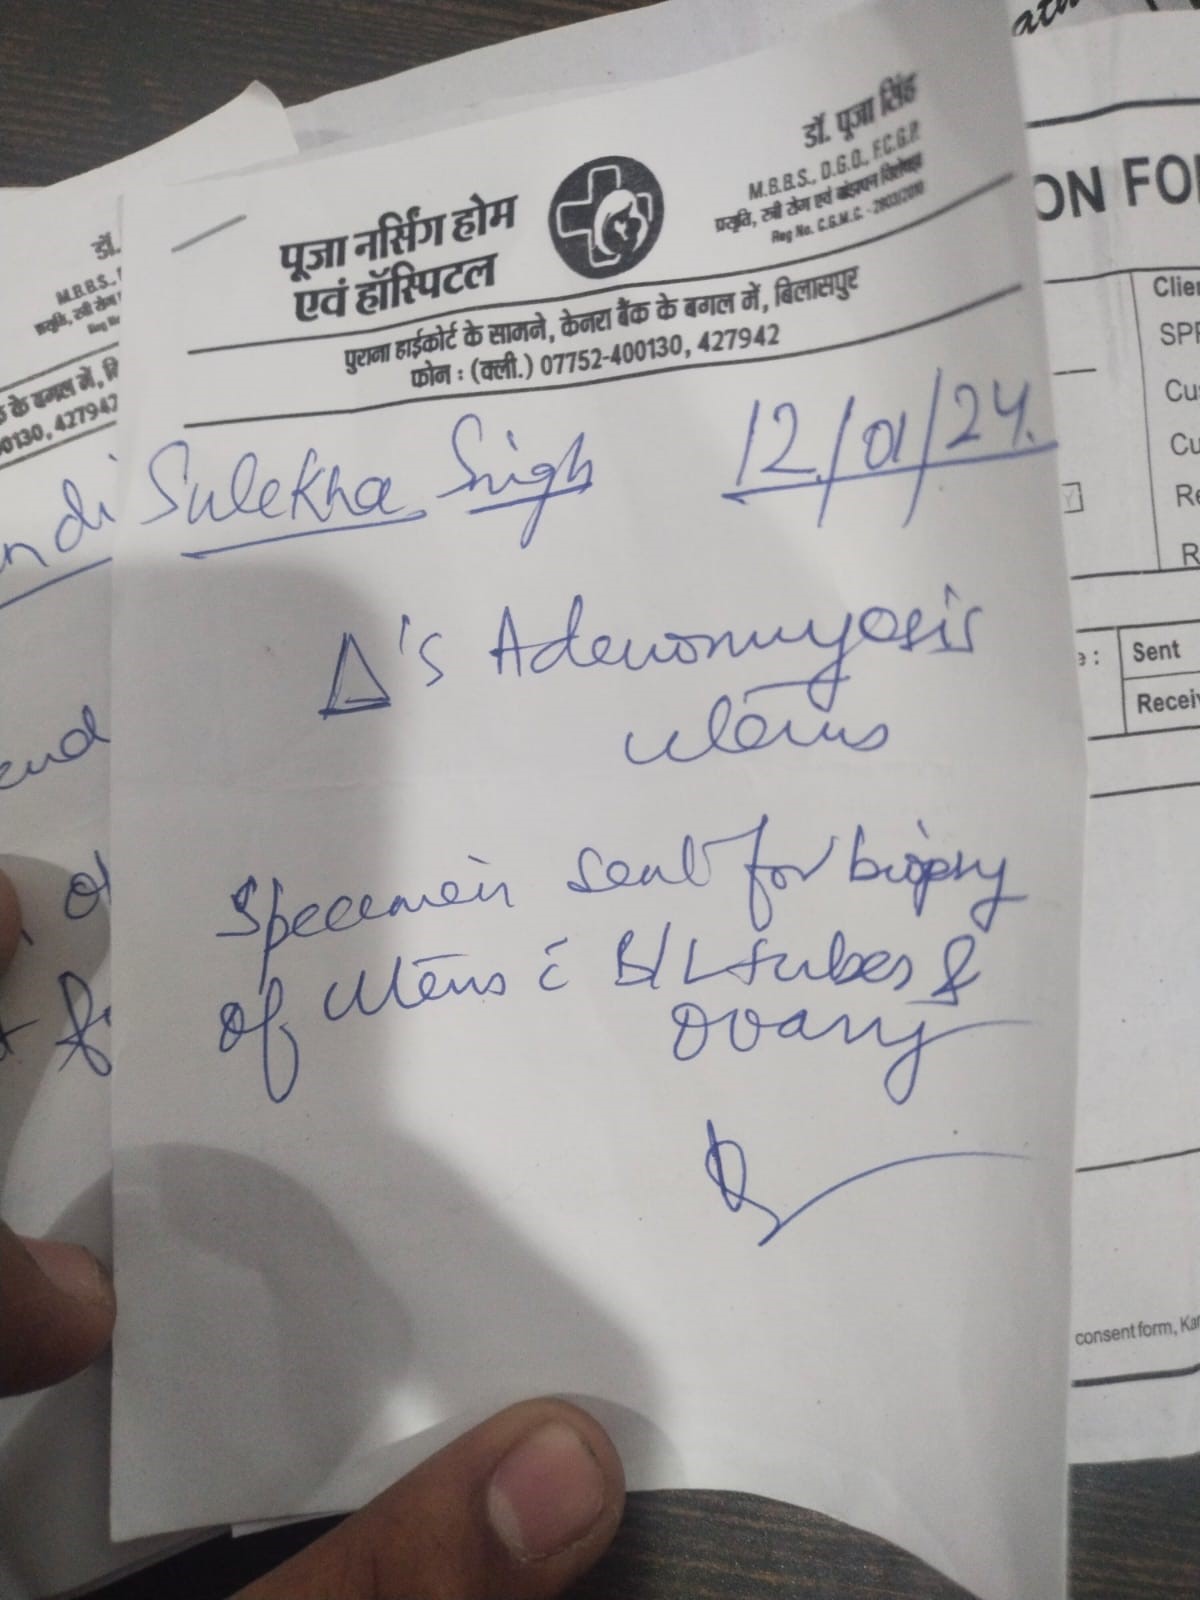 डॉ. पूजा सिंह
M.B.B.S., D.G.O., F.C.G.P.
प्रसूति, स्त्री रोग एवं बांझपन विशेषज्ञ
Reg No. C.G.M.C. - 2803/2010
पूजा नर्सिंग होम
एवं हॉस्पिटल
पुराना हाईकोर्ट के सामने, केनरा बैंक के बगल में, बिलासपुर
फोन : (क्ली.) 07752-400130, 427942
Sulekha Singh 12/01/24.
Δ's Adenomyosis
uterus
Specimen sent for biopsy
of uterus c̄ B/L tubes &
ovary
डॉ.
M.B.B.S.,
के बगल में,
00130, 427942
ON FO
Clie
SPE
Cu
Cu
Re
R
Sent
Recei
consent form, Kar